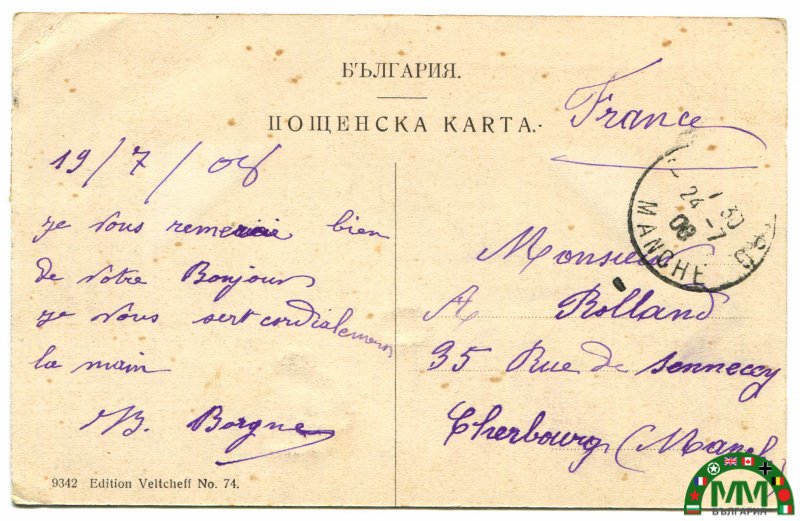 БЪЛГАРИЯ.
ПОЩЕНСКА КАРТА.
France
19/7/08
je vous remercie bien
de votre Bonjour
je vous sert cordialement
la main
B. Borgne
1 30
24 - 7
08
MANCHE
Monsieur
A Rolland
35 Rue de Sennecey
Cherbourg (Manche
9342 Edition Veltcheff No. 74.
MM
БЪЛГАРИЯ